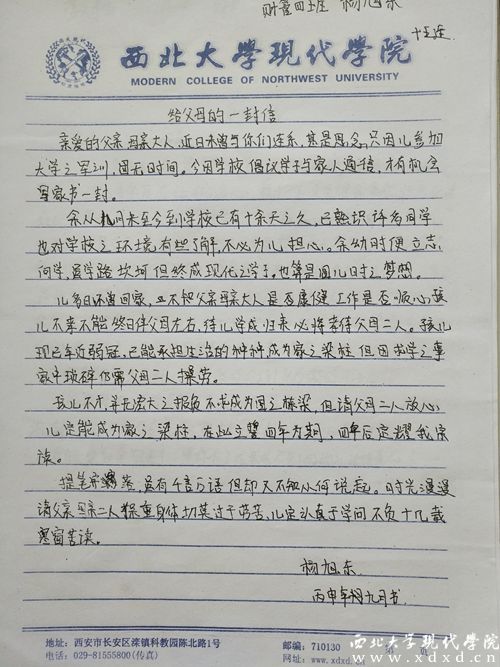 财管四班 杨旭东
十五连
西北大學現代學院
MODERN COLLEGE OF NORTHWEST UNIVERSITY
给父母的一封信
亲爱的父亲母亲大人,近日未曾与你们连系,甚是思念,只因儿参加
大学之军训,固无时间。今日学校倡议学子与家人通信,才有机会
写家书一封。
余从九月来至今到学校已有十余天之久,已熟识许多同学
也对学校之环境有些了解,不必为儿担心。余幼时便立志
向学,虽学路坎坷但终成现代之学子,也算是圆儿时之梦想。
儿多日还曾回家,亚不知父亲母亲大人是否康健工作是否顺心,孩
儿不孝不能终日伴父母左右,待儿学成归来必将孝待父母二人。孩儿
现已年近弱冠,已能承担生活的种种,成为家之梁柱但因求学之事
家中琐碎仍需父母二人操劳。
孩儿不才,并无宏大之报负不求成为国之栋梁,但请父母二人放心
儿定能成为家之梁柱,在此立誓四年为期,四年后定耀我宗
族。
提笔,虽有千言万语但却又不知从何说起。时光漫漫
请父亲母亲二人保重身体切莫过于劳苦,儿定认真于学问不负十几载
寒窗苦读。
杨旭东
丙申年九月书
地址:西安市长安区滦镇科教园陈北路1号
邮编:710130
电话:029-81555800(传真)
网址:www.xdxd.cn
第 页
西北大学现代学院
www.xdxd.cn